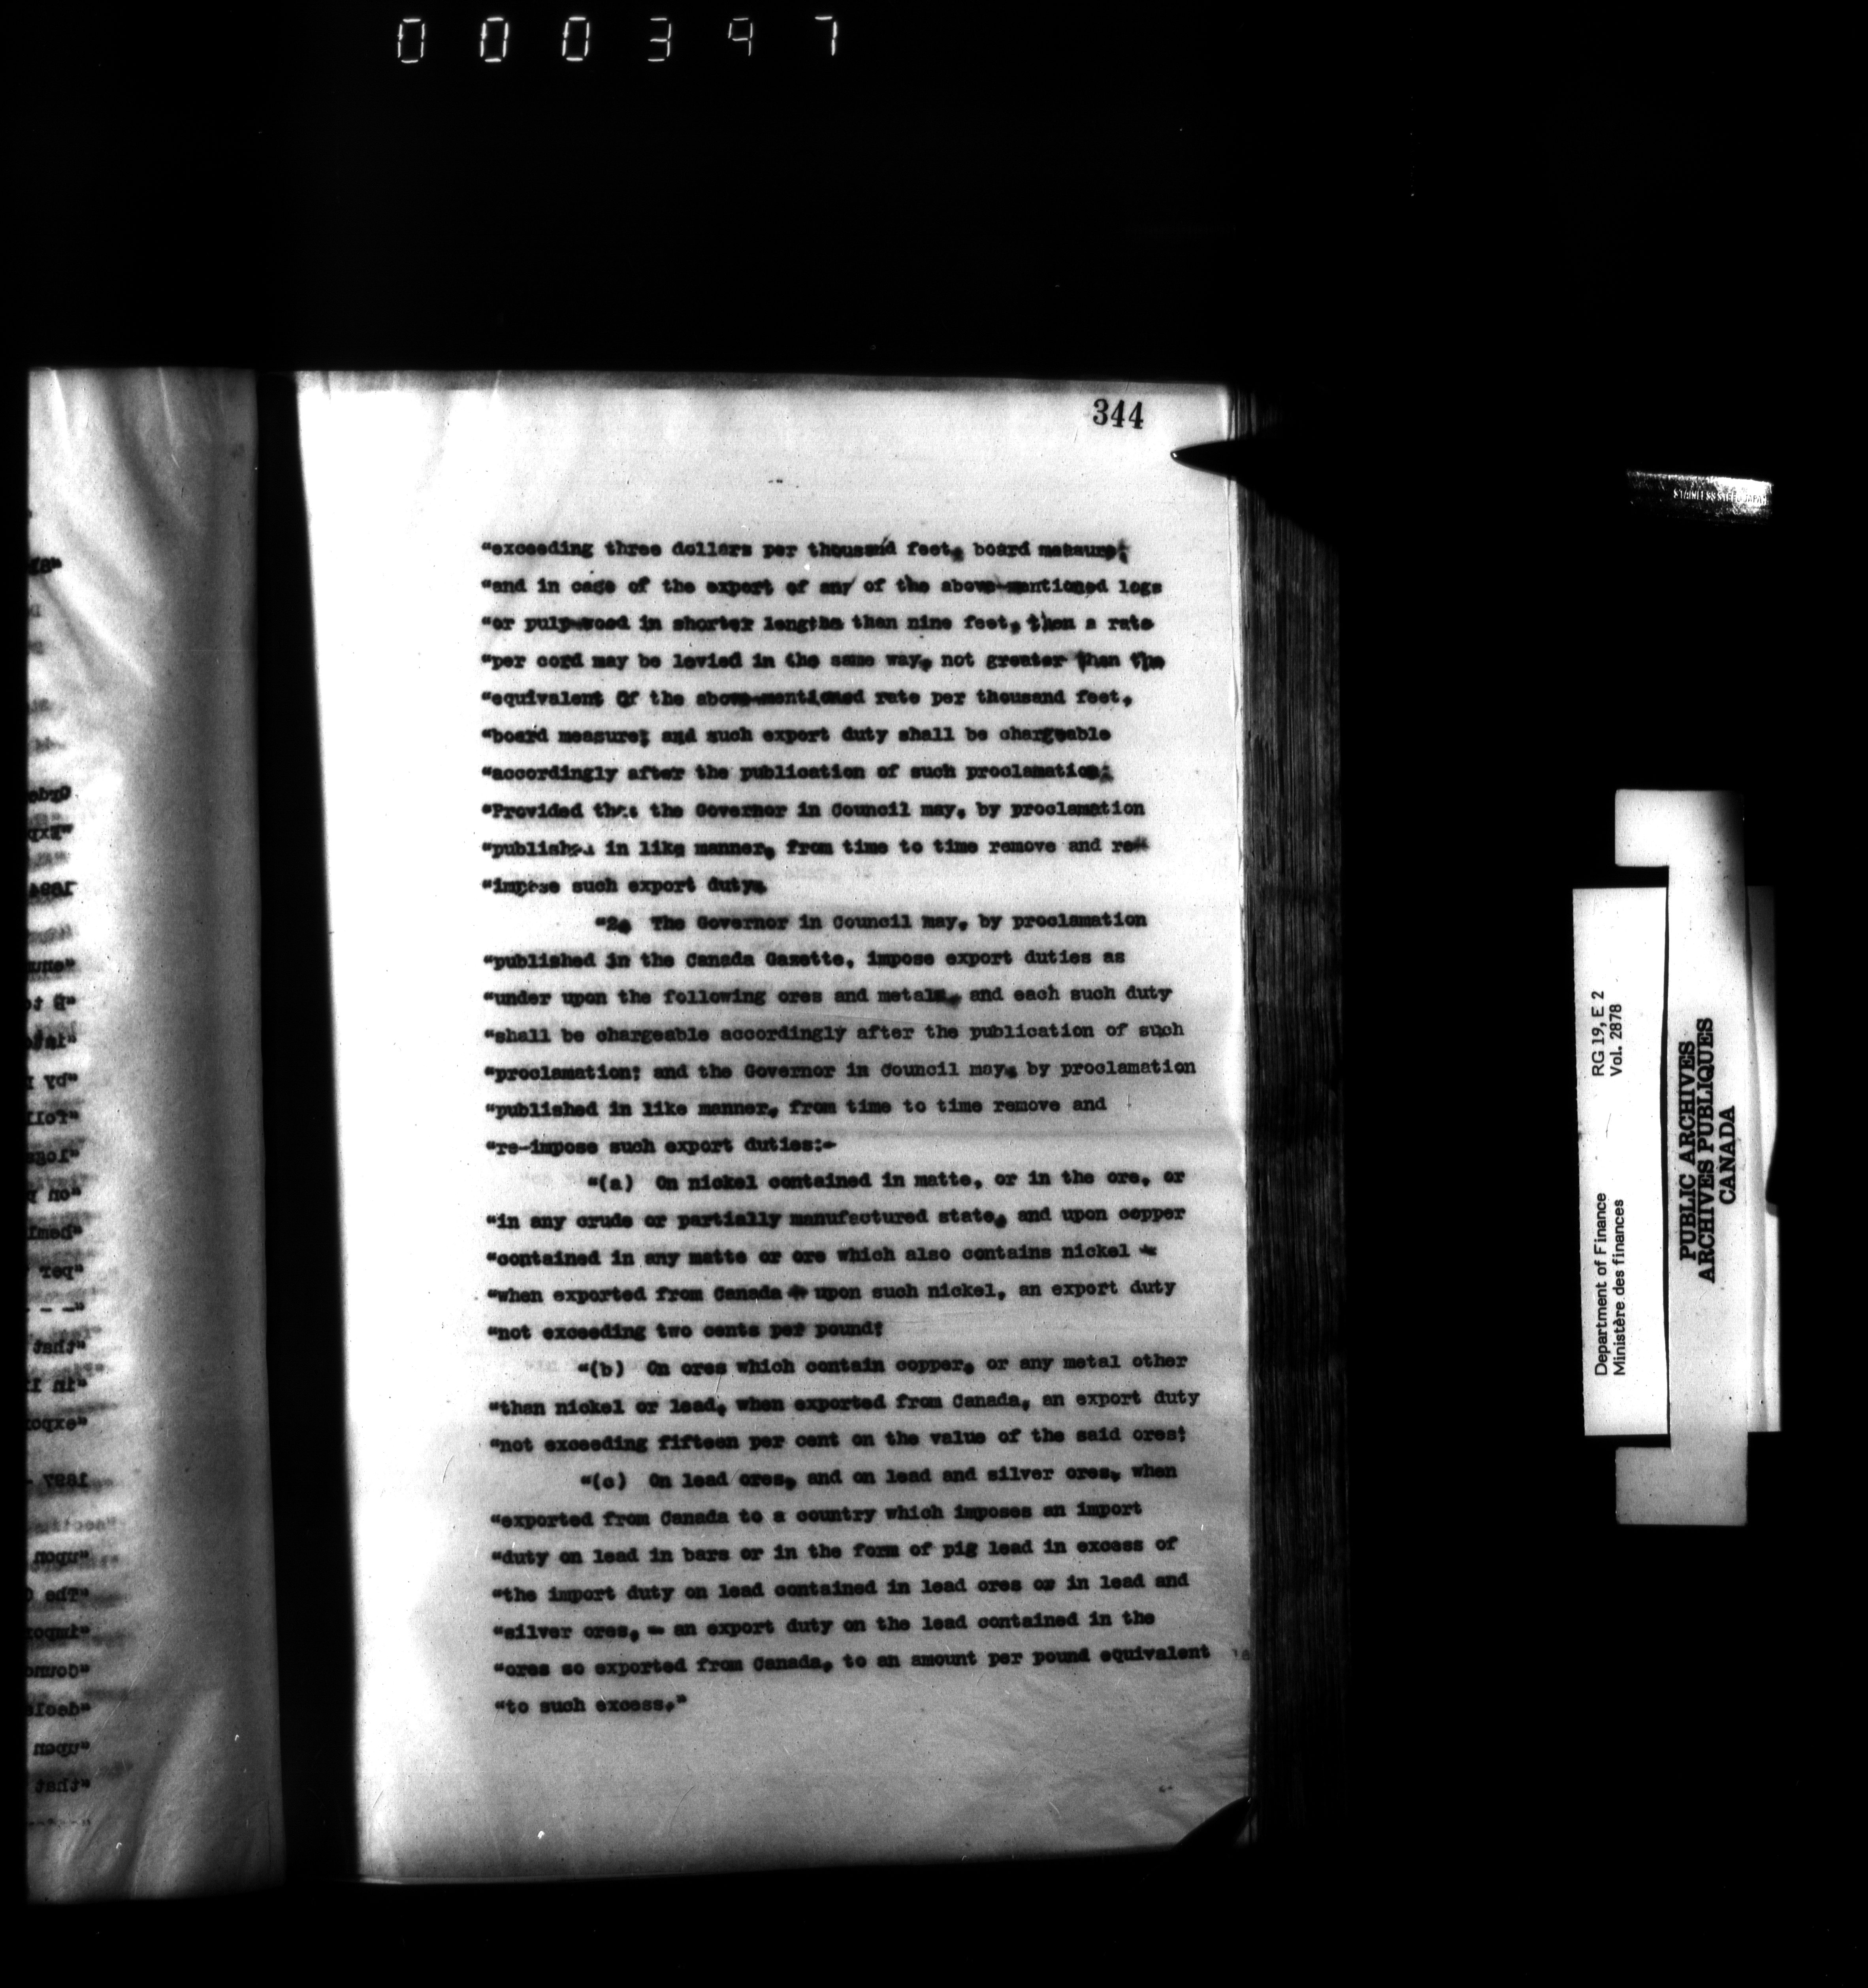 000397
344
"exceeding three dollars per thousand feet, board measure;
"and in case of the export of any of the above-mentioned logs
"or pulp-wood in shorter lengths than nine feet, then a rate
"per cord may be levied in the same way, not greater than the
"equivalent of the above-mentioned rate per thousand feet,
"board measure; and such export duty shall be chargeable
"accordingly after the publication of such proclamation;
"Provided that the Governor in Council may, by proclamation
"published in like manner, from time to time remove and re-
"impose such export duty.
"2. The Governor in Council may, by proclamation
"published in the Canada Gazette, impose export duties as
"under upon the following ores and metals, and each such duty
"shall be chargeable accordingly after the publication of such
"proclamation; and the Governor in Council may, by proclamation
"published in like manner, from time to time remove and
"re-impose such export duties:-
"(a) On nickel contained in matte, or in the ore, or
"in any crude or partially manufactured state, and upon copper
"contained in any matte or ore which also contains nickel -
"when exported from Canada - upon such nickel, an export duty
"not exceeding two cents per pound;
"(b) On ores which contain copper, or any metal other
"than nickel or lead, when exported from Canada, an export duty
"not exceeding fifteen per cent on the value of the said ores;
"(c) On lead ores, and on lead and silver ores, when
"exported from Canada to a country which imposes an import
"duty on lead in bars or in the form of pig lead in excess of
"the import duty on lead contained in lead ores or in lead and
"silver ores, - an export duty on the lead contained in the
"ores so exported from Canada, to an amount per pound equivalent
"to such excess."
STAINLESS STEEL JAPAN
Department of Finance RG 19, E 2
Ministère des finances Vol. 2878
PUBLIC ARCHIVES
ARCHIVES PUBLIQUES
CANADA